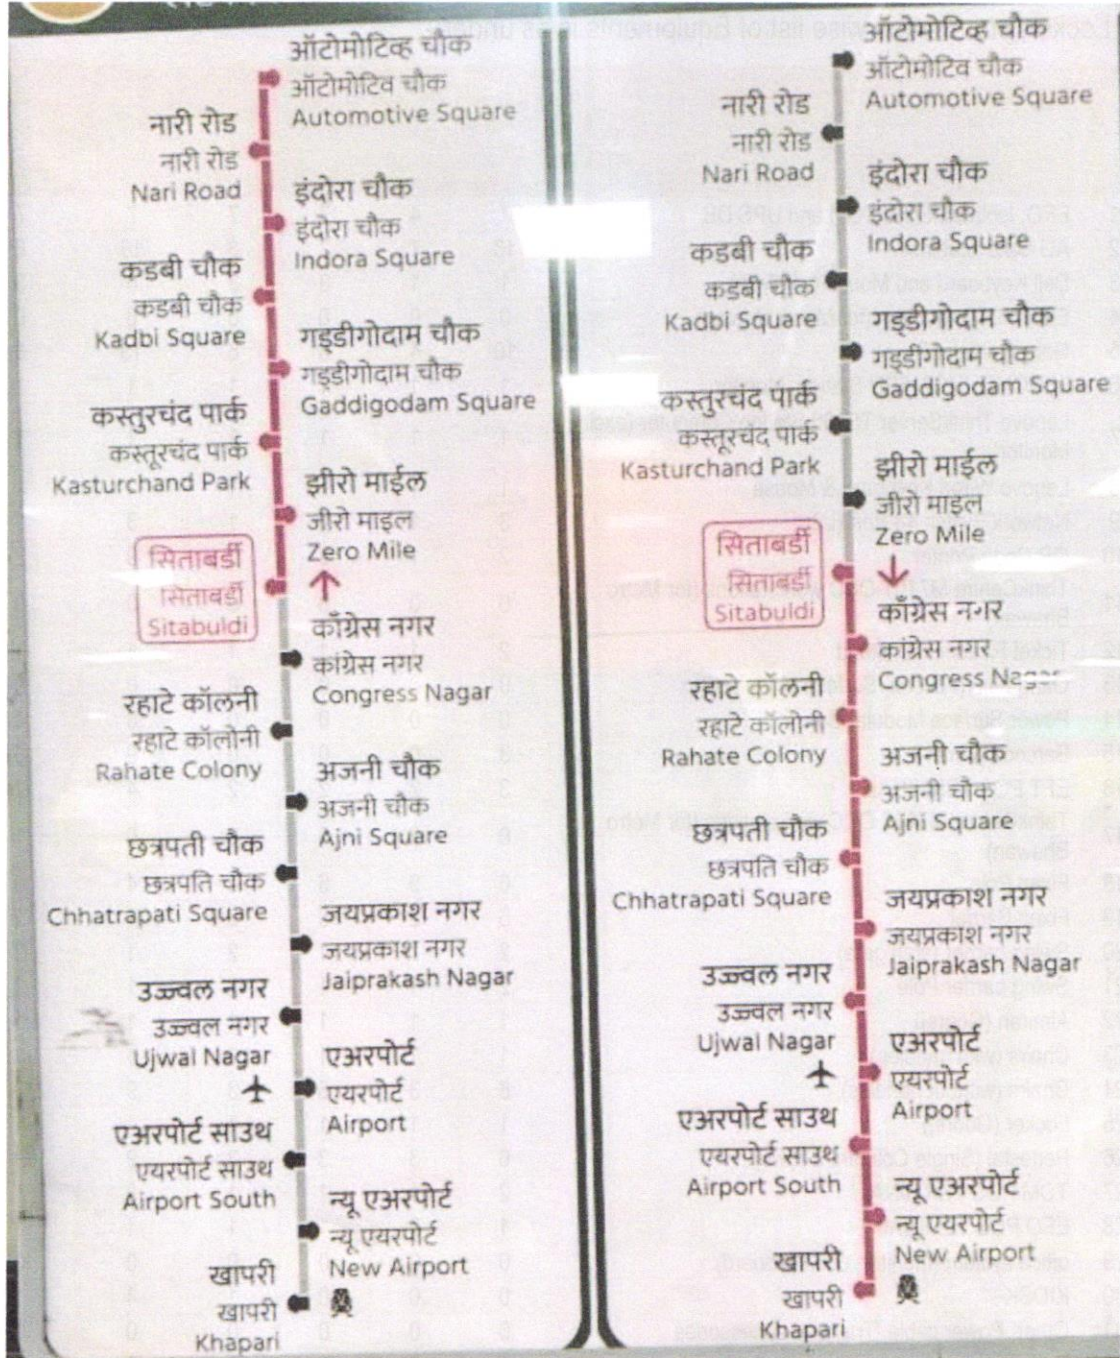 ऑटोमोटिव्ह चौक
ऑटोमोटिव चौक
Automotive Square
नारी रोड
नारी रोड
Nari Road
इंदोरा चौक
इंदोरा चौक
Indora Square
कडबी चौक
कडबी चौक
Kadbi Square
गड्डीगोदाम चौक
गड्डीगोदाम चौक
Gaddigodam Square
कस्तुरचंद पार्क
कस्तूरचंद पार्क
Kasturchand Park
झीरो माईल
जीरो माइल
Zero Mile
सिताबर्डी
सिताबर्डी
Sitabuldi
काँग्रेस नगर
कांग्रेस नगर
Congress Nagar
रहाटे कॉलनी
रहाटे कॉलोनी
Rahate Colony
अजनी चौक
अजनी चौक
Ajni Square
छत्रपती चौक
छत्रपति चौक
Chhatrapati Square
जयप्रकाश नगर
जयप्रकाश नगर
Jaiprakash Nagar
उज्ज्वल नगर
उज्ज्वल नगर
Ujwal Nagar
एअरपोर्ट
एयरपोर्ट
Airport
एअरपोर्ट साउथ
एयरपोर्ट साउथ
Airport South
न्यू एअरपोर्ट
न्यू एयरपोर्ट
New Airport
खापरी
खापरी
Khapari
ऑटोमोटिव्ह चौक
ऑटोमोटिव चौक
Automotive Square
नारी रोड
नारी रोड
Nari Road
इंदोरा चौक
इंदोरा चौक
Indora Square
कडबी चौक
कडबी चौक
Kadbi Square
गड्डीगोदाम चौक
गड्डीगोदाम चौक
Gaddigodam Square
कस्तुरचंद पार्क
कस्तूरचंद पार्क
Kasturchand Park
झीरो माईल
जीरो माइल
Zero Mile
सिताबर्डी
सिताबर्डी
Sitabuldi
काँग्रेस नगर
कांग्रेस नगर
Congress Nagar
रहाटे कॉलनी
रहाटे कॉलोनी
Rahate Colony
अजनी चौक
अजनी चौक
Ajni Square
छत्रपती चौक
छत्रपति चौक
Chhatrapati Square
जयप्रकाश नगर
जयप्रकाश नगर
Jaiprakash Nagar
उज्ज्वल नगर
उज्ज्वल नगर
Ujwal Nagar
एअरपोर्ट
एयरपोर्ट
Airport
एअरपोर्ट साउथ
एयरपोर्ट साउथ
Airport South
न्यू एअरपोर्ट
न्यू एयरपोर्ट
New Airport
खापरी
खापरी
Khapari